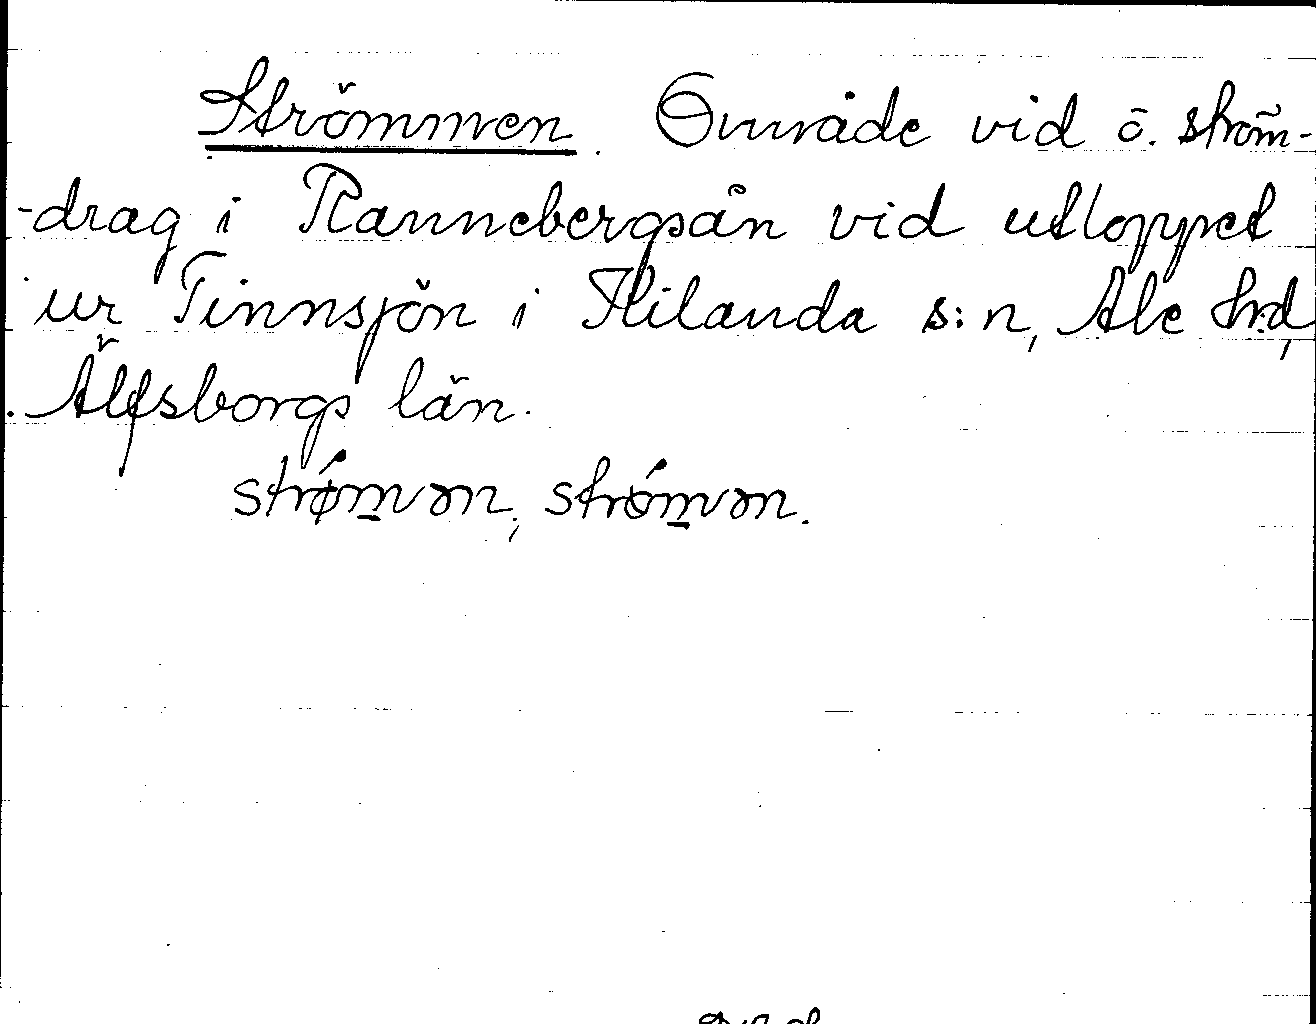 Strömmen. Område vid ö. ström-
-drag i Rannebergsån vid utloppet
ur Tinnsjön i Hålanda s:n, Ale hd,
Älfsborgs län.
strǿm̲ən, strö́m̲ən.